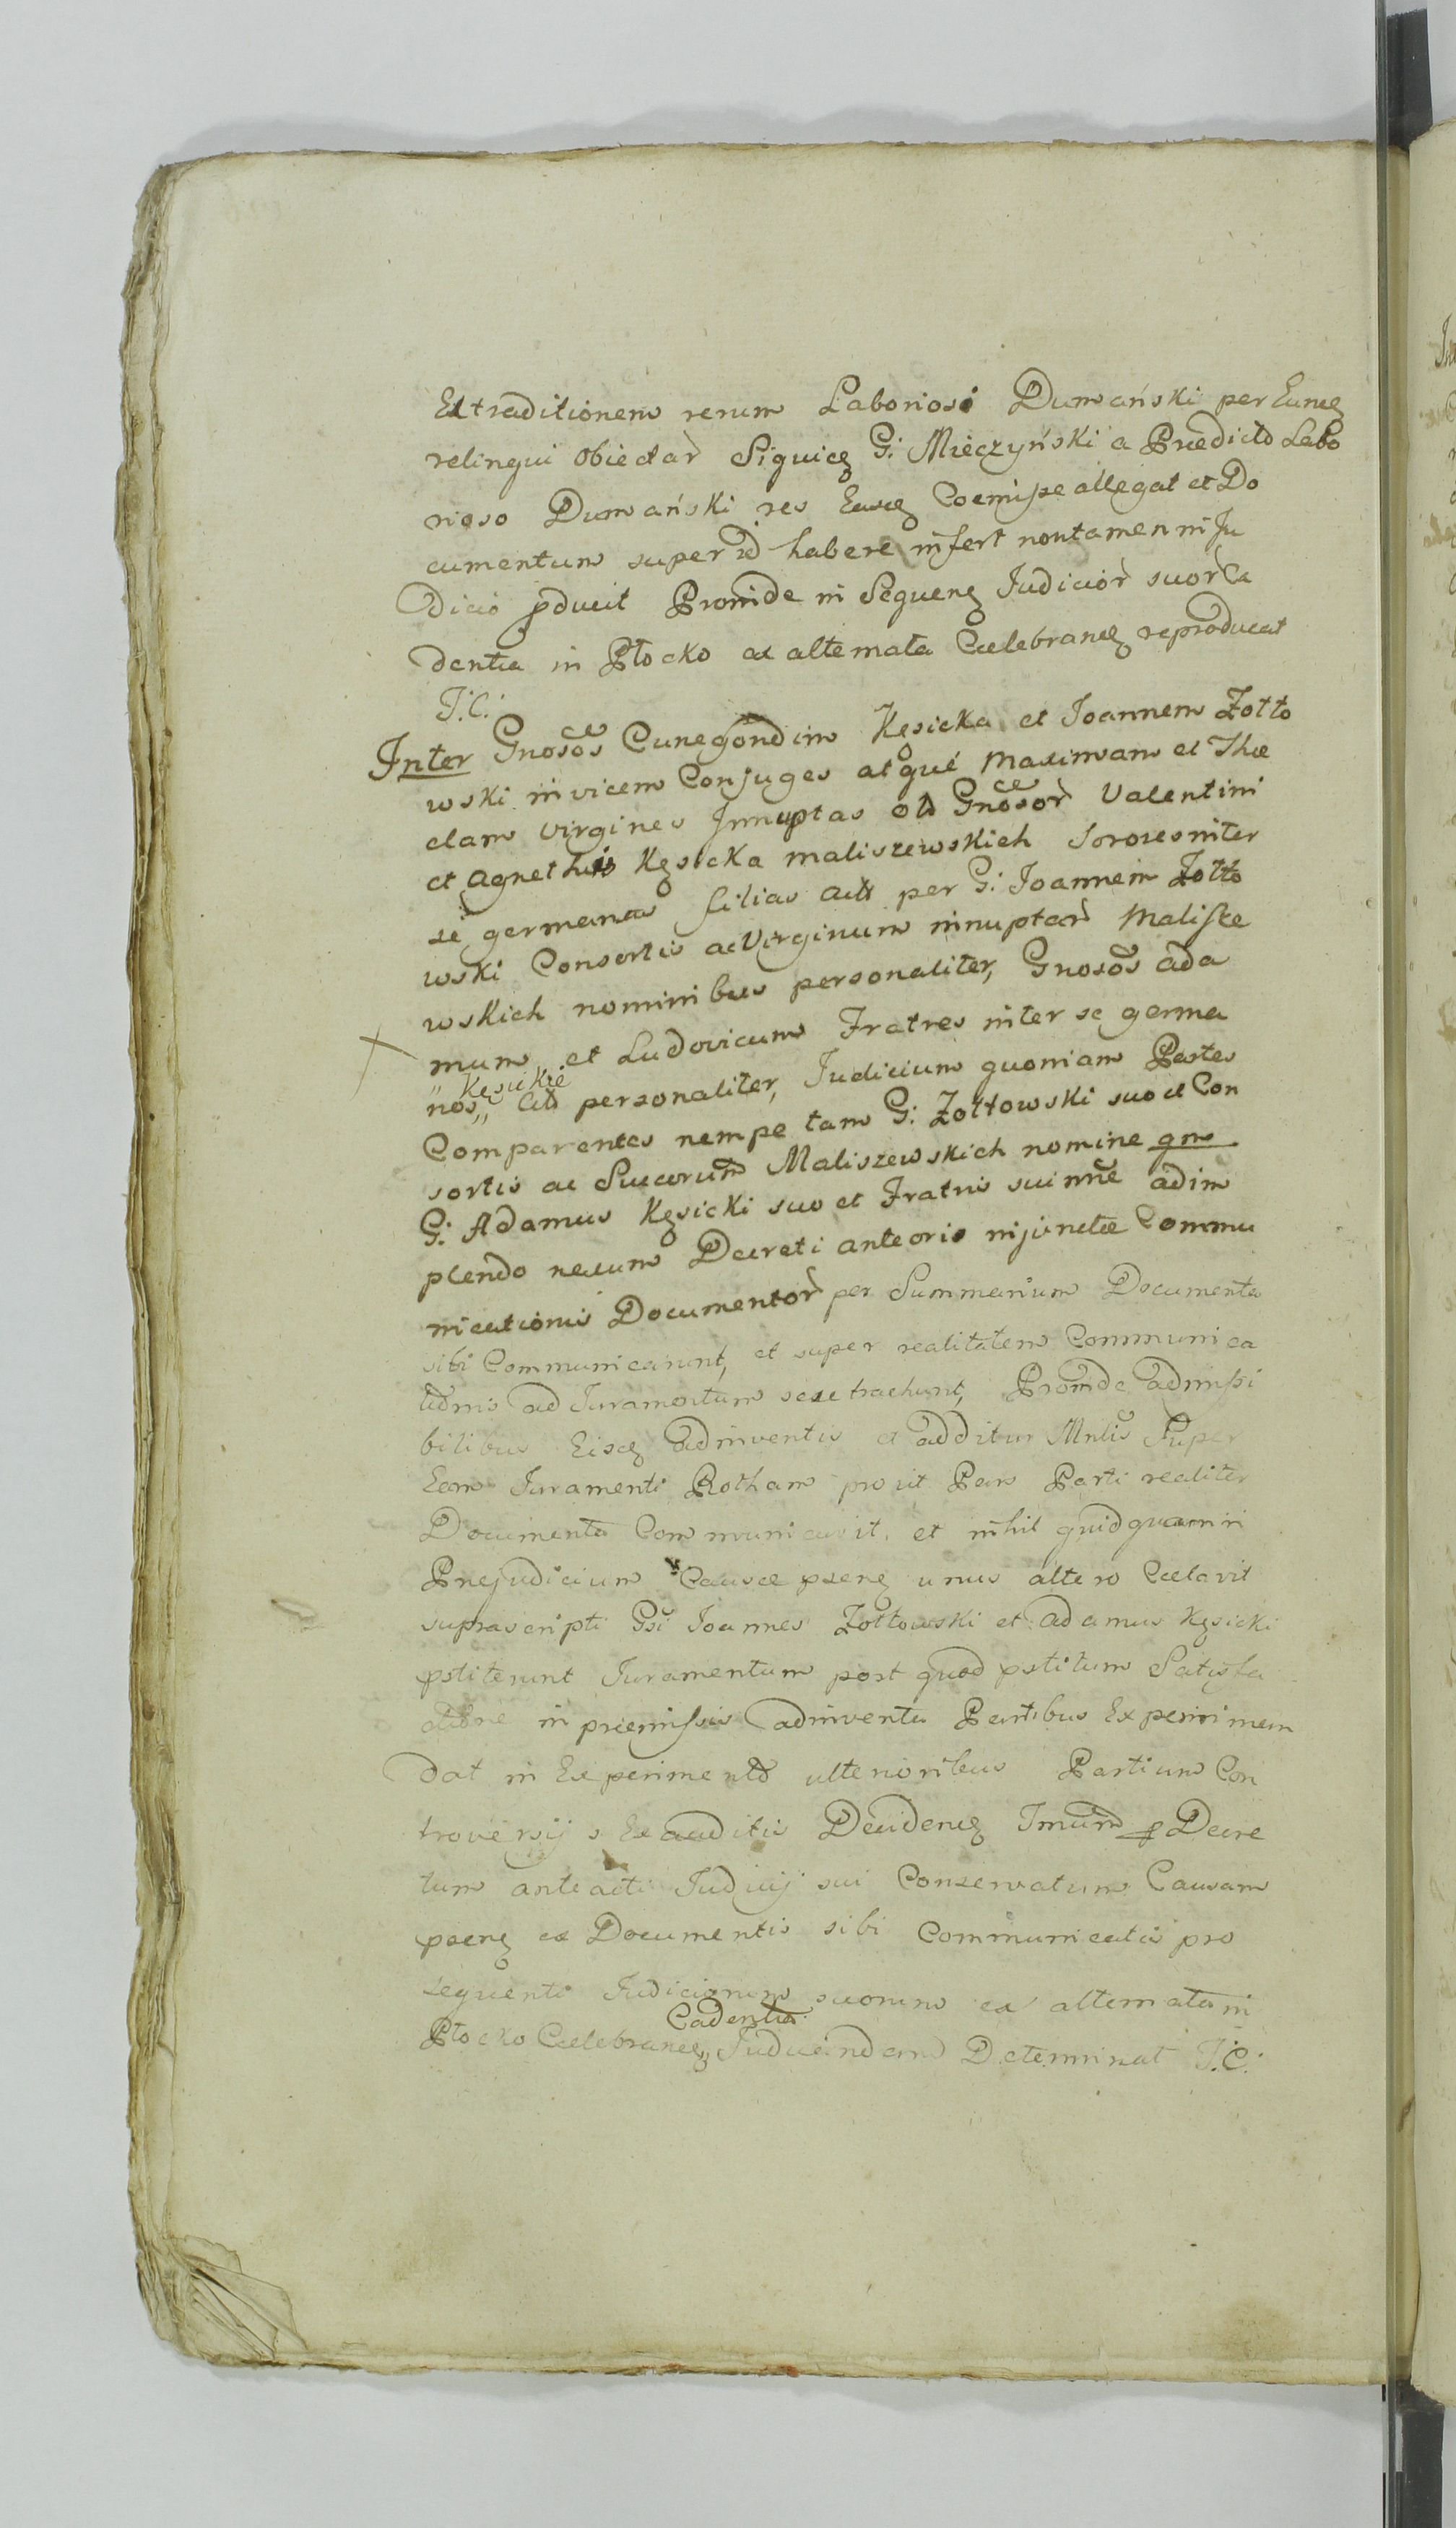 Extraditionem rerum Laboriosi Dumański per Eundȩ
relinqui obiectar Siquidȩ G: Mieczyński a Prædicto Labo
rioso Dumański res Easdȩ Coemisse allegat et Do
cumentum super id habere infert non tamen in Ju
dicio pducit Proinde in Sequenȩ Judicior suor Ca
dentia in Płocko ex alternata Cælebrandȩ reproducat
I.C.
Inter Gnosos Cunegondim Kęsicka et Joannem Zołto
wski invicem Conjuges atque Maximam et The
clam Virgines Innuptas olo Gnosor Valentini
et Agnethis Kęsicka Maliszewskich Sorores inter
se germanas filias act per G: Joannem Zołto
wski Consortis ac Virginum innuptar Malisze
wskich nominibus personaliter, Gnosos Ada
mum et Ludovicum Fratres inter se germa
nos,, Kęsickie act personaliter, Judicium quoniam Partes
Comparentes nempe tam G: Zołtowski suo et Con
sortis ac Suarum Maliszewskich nomine qm
G: Adamus Kęsicki suo et Fratris sui nne adim
plendo nexum Decreti anteoris injunctæ Commu
nicationis Documentor per Summarium Documenta
sibi Communicarunt, et super realitatem Communica
tionis ad Juramentum sese trachunt, Proinde admissi
bilibus Eisdȩ adinventis et additur Mnlis Super
Eam Juramenti Rotham prout Pars Parti realiter
Documenta Communicavit, et nihil quidquam in
Prejudicium Causæ psenȩ unus altero Cælavit
suprascripti Gsi Joannes Zołtowski et Adamus Kęsicki
pstiterunt Juramentum post quod pstitum Satisfa
ctione in præmissis adinventa Partibus Experimen
dat in Experimento ulterioribus Partium Con
troversijs Exauditis Decidenȩ Imum p Decre
tum anteacti Judicij sui Conservatum Causam
psenȩ ex Documentis sibi Communicatis pro
sequenti Judiciorum suorum ex alternata in
Płocko Cælebrandȩ Cadentia Judicandam Determinat I.C.